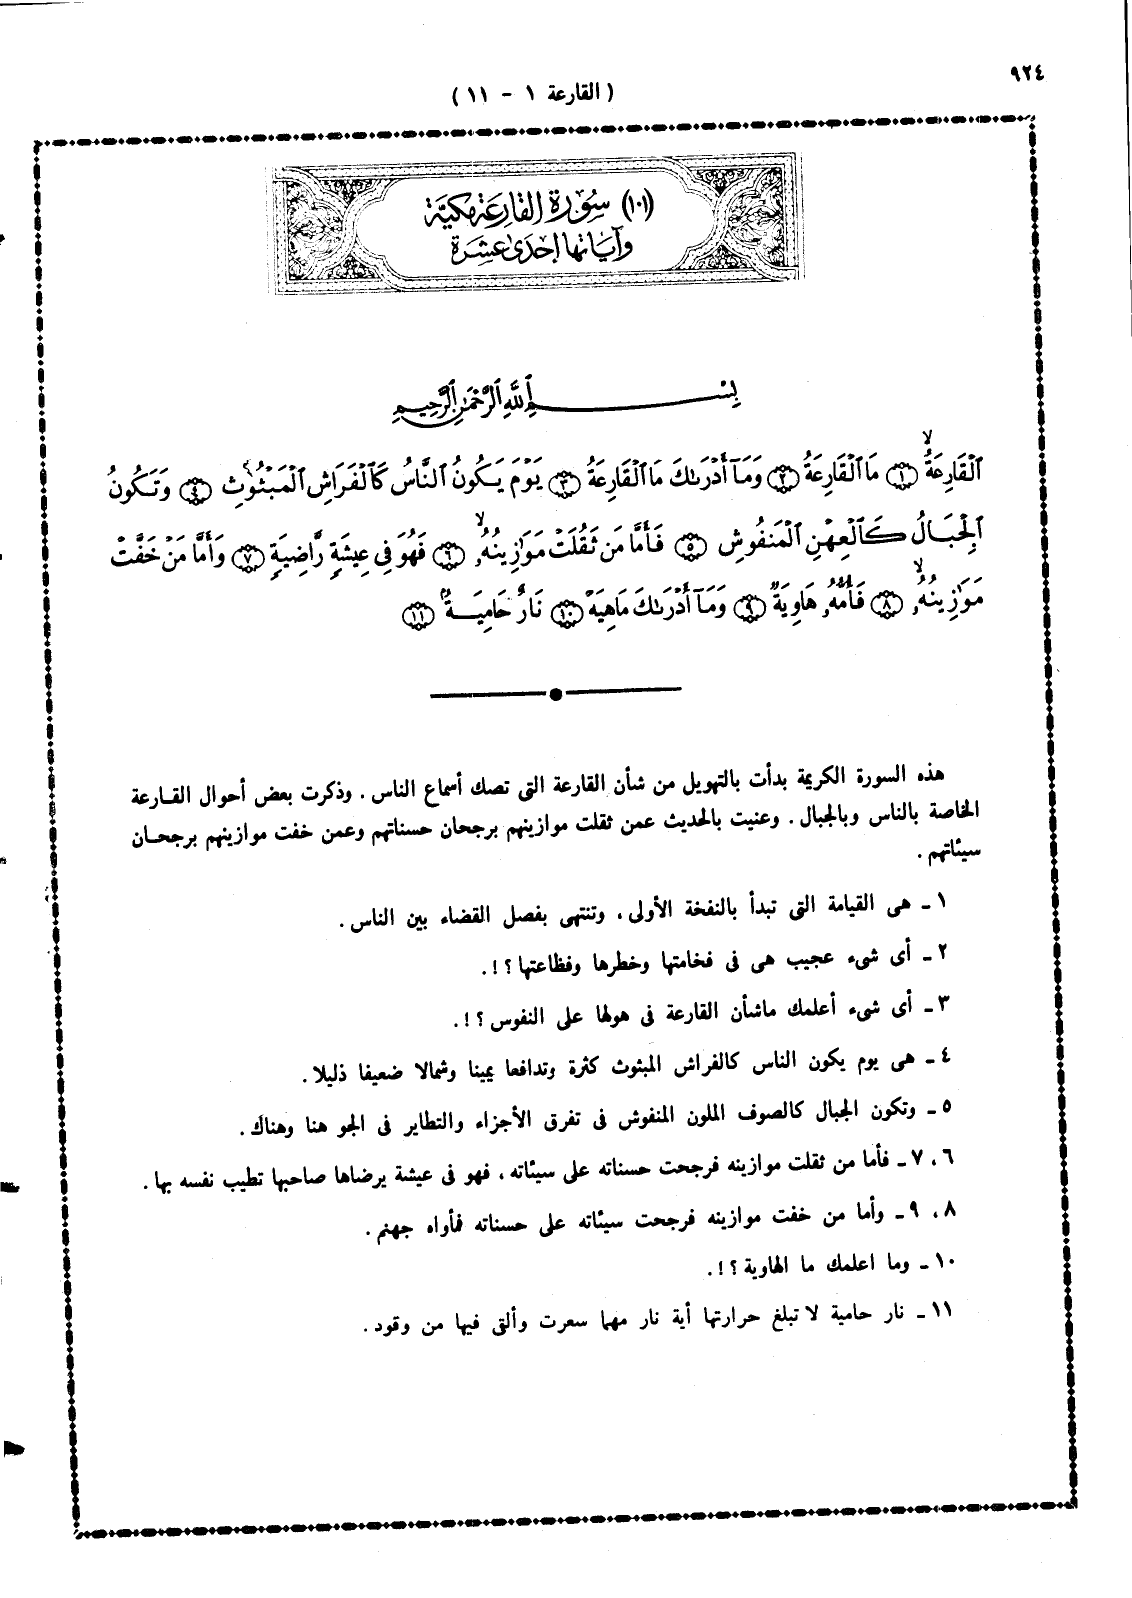 ٩٢٤
( القارعة ١ - ١١ )
(١٠١) سُورَة القارعَة مكيَّة
وآياتها إحدى عشرة
بِسْمِ ٱللَّهِ ٱلرَّحْمَٰنِ ٱلرَّحِيمِ
ٱلْقَارِعَةُ ۙ ١ مَا ٱلْقَارِعَةُ ٢ وَمَآ أَدْرَىٰكَ مَا ٱلْقَارِعَةُ ٣ يَوْمَ يَكُونُ ٱلنَّاسُ كَٱلْفَرَاشِ ٱلْمَبْثُوثِ ٤ وَتَكُونُ
ٱلْجِبَالُ كَٱلْعِهْنِ ٱلْمَنفُوشِ ٥ فَأَمَّا مَن ثَقُلَتْ مَوَٰزِينُهُۥ ۙ ٦ فَهُوَ فِى عِيشَةٍ رَّاضِيَةٍ ٧ وَأَمَّا مَنْ خَفَّتْ
مَوَٰزِينُهُۥ ۙ ٨ فَأُمُّهُۥ هَاوِيَةٌ ٩ وَمَآ أَدْرَىٰكَ مَاهِيَهْ ١٠ نَارٌ حَامِيَةٌۢ ١١
هذه السورة الكريمة بدأت بالتهويل من شأن القارعة التى تصك أسماع الناس . وذكرت بعض أحوال القارعة
الخاصة بالناس وبالجبال . وعنيت بالحديث عمن ثقلت موازينهم برجحان حسناتهم وعمن خفت موازينهم برجحان
سيئاتهم .
١ ـ هى القيامة التى تبدأ بالنفخة الأولى ، وتنتهى بفصل القضاء بين الناس .
٢ ـ أى شىء عجيب هى فى فخامتها وخطرها وفظاعتها ؟ ! .
٣ ـ أى شىء أعلمك ماشأن القارعة فى هولها على النفوس ؟ ! .
٤ ـ هى يوم يكون الناس كالفراش المبثوث كثرة وتدافعا يمينا وشمالا ضعيفا ذليلا .
٥ ـ وتكون الجبال كالصوف الملون المنفوش فى تفرق الأجزاء والتطاير فى الجو هنا وهناك .
٦ ، ٧ ـ فأما من ثقلت موازينه فرجحت حسناته على سيئاته ، فهو فى عيشة يرضاها صاحبها تطيب نفسه بها .
٨ ، ٩ ـ وأما من خفت موازينه فرجحت سيئاته على حسناته فمأواه جهنم .
١٠ ـ وما اعلمك ما الهاوية ؟ ! .
١١ ـ نار حامية لا تبلغ حرارتها أية نار مهما سعرت وألقى فيها من وقود .